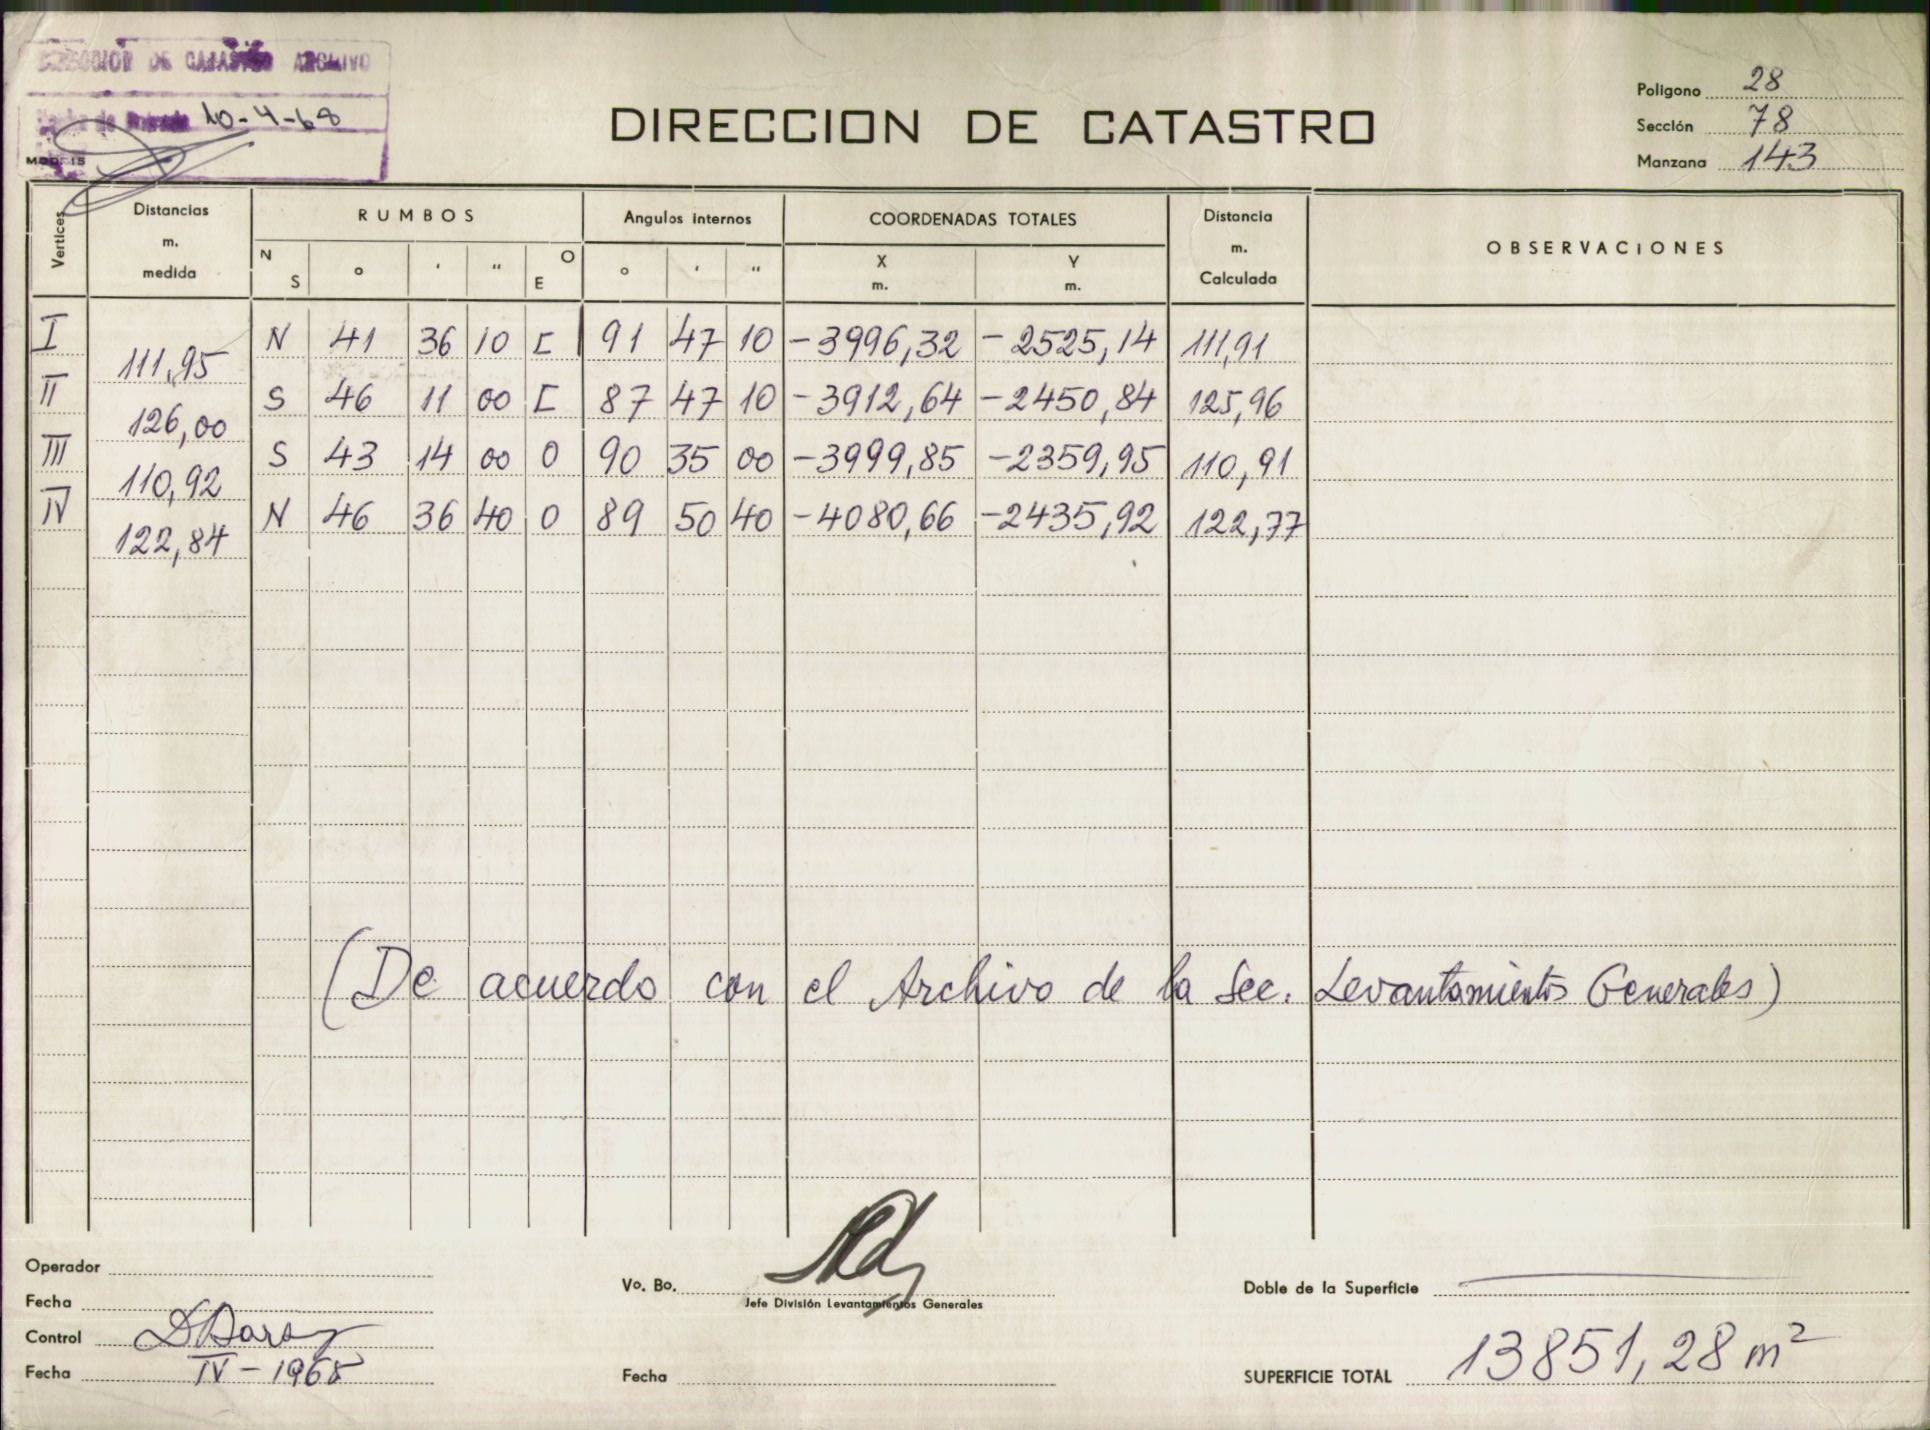 DIRECCION DE CATASTRO ARCHIVO
10-4-68
DIRECCION DE CATASTRO
Poligono 28
Sección 78
Manzana 143
Vertices
Distancias m. medida
RUMBOS
Angulos internos
COORDENADAS TOTALES
Distancia m. Calculada
OBSERVACIONES
N S ° ' " O E ° ' " X m. Y m.
I N 41 36 10 E 91 47 10 -3996,32 -2525,14 111,91
111,95
II S 46 11 00 E 87 47 10 -3912,64 -2450,84 125,96
126,00
III S 43 14 00 O 90 35 00 -3999,85 -2359,95 110,91
110,92
IV N 46 36 40 O 89 50 40 -4080,66 -2435,92 122,77
122,84
(De acuerdo con el Archivo de la Sec. Levantamientos Generales)
Operador
Fecha
Control
Fecha IV-1968
Vo. Bo.
Jefe División Levantamientos Generales
Fecha
Doble de la Superficie
SUPERFICIE TOTAL 13851,28 m²